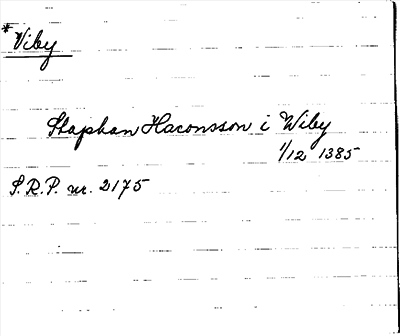 *Viby
Staphan Haconsson i Wiby
1/12 1385
S.R.P. nr. 2175